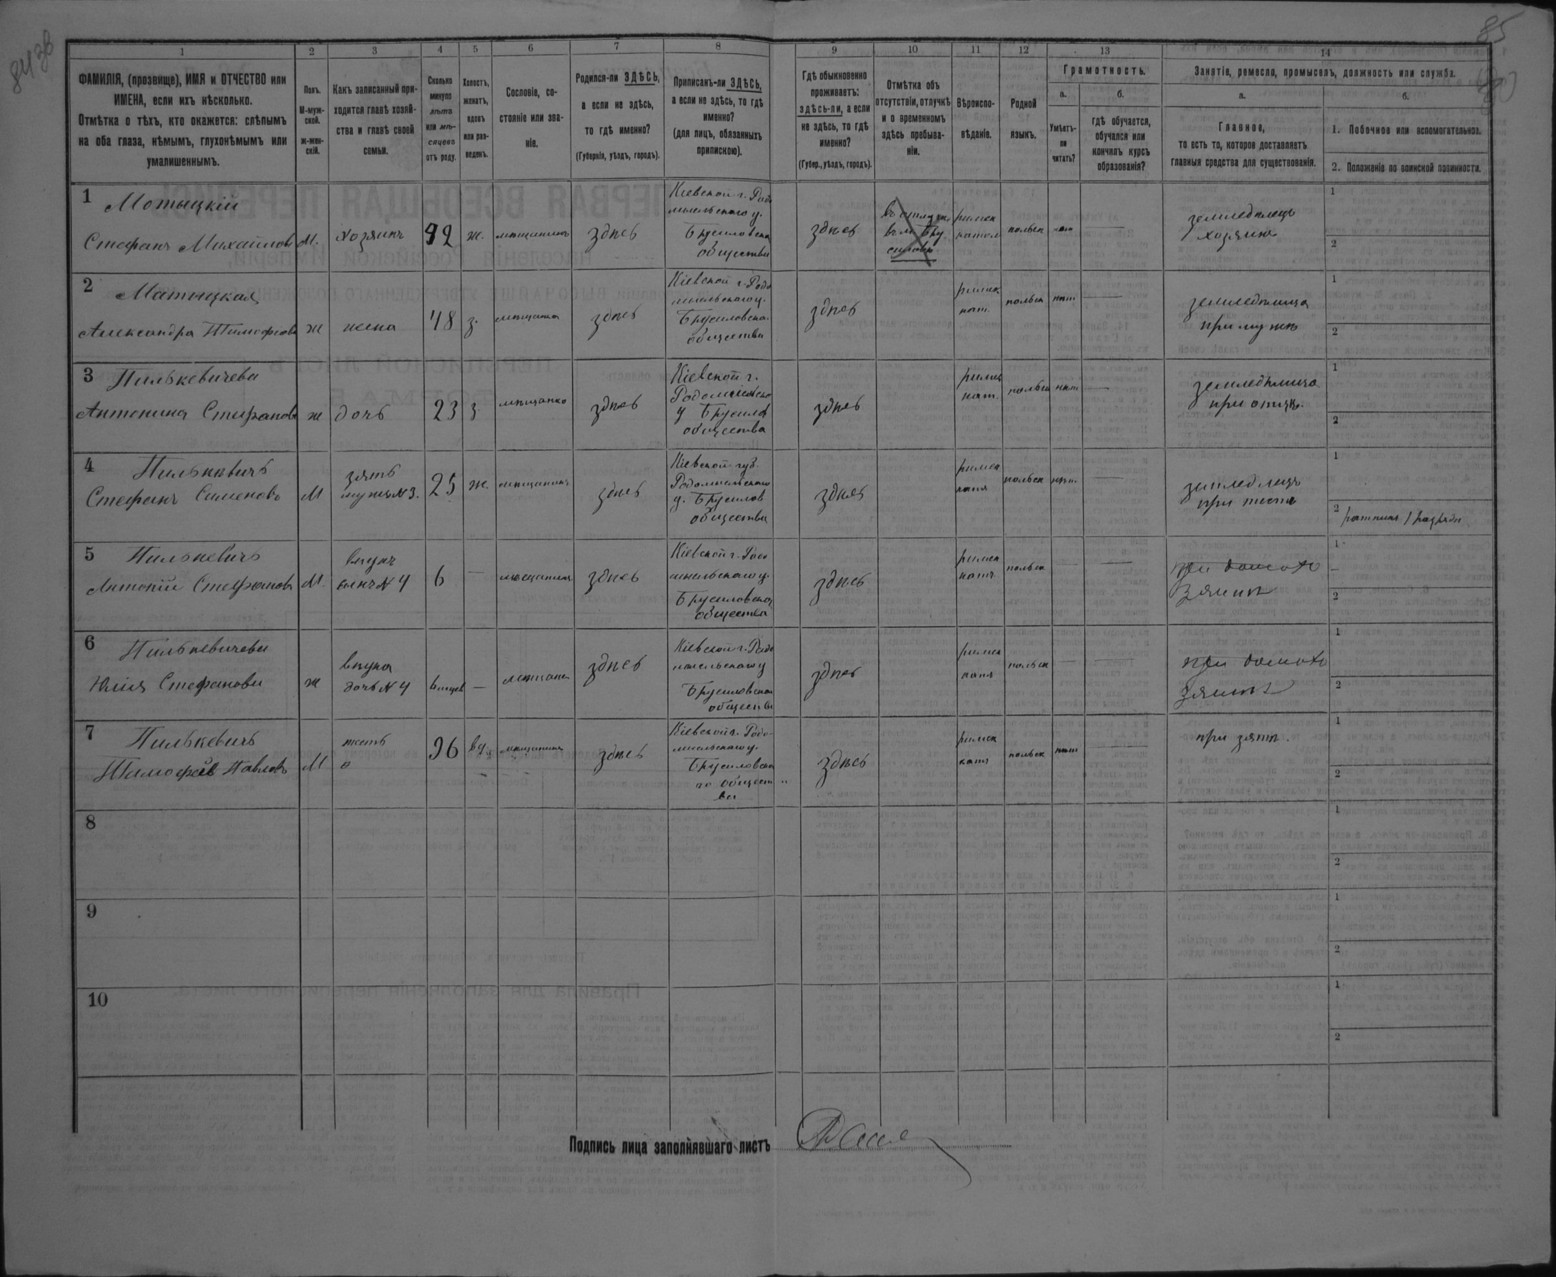 84 зв
85
1
2
3
4
5
6
7
8
9
10
11
12
13
14
ФАМИЛІЯ, (прозвище), ИМЯ и ОТЧЕСТВО или
ИМЕНА, если ихъ нѣсколько.
Отмѣтка о тѣхъ, кто окажется: слѣпымъ
на оба глаза, нѣмымъ, глухонѣмымъ или
умалишеннымъ.
Полъ.
М-муж-
ской.
ж-жен-
скій.
Какъ записанный при-
ходится главѣ хозяй-
ства и главѣ своей
семьи.
Сколько
минуло
лѣтъ
или мѣ-
сяцевъ
отъ роду.
Холостъ,
женатъ,
вдовъ
или раз-
веденъ.
Сословіе, со-
стояніе или зва-
ніе.
Родился-ли ЗДѢСЬ,
а если не здѣсь,
то гдѣ именно?
(Губернія, уѣздъ, городъ).
Приписанъ-ли ЗДѢСЬ,
а если не здѣсь, то гдѣ
именно?
(для лицъ, обязанныхъ
припискою).
Гдѣ обыкновенно
проживаетъ:
здѣсь-ли, а если
не здѣсь, то гдѣ
именно?
(Губер., уѣздъ, городъ).
Отмѣтка объ
отсутствіи, отлучкѣ
и о временномъ
здѣсь пребыва-
ніи.
Вѣроиспо-
вѣданіе.
Родной
языкъ.
Грамотность.
а.
Умѣетъ-
ли
читать?
б.
гдѣ обучается,
обучался или
кончилъ курсъ
образованія?
Занятіе, ремесло, промыселъ, должность или служба.
а.
Главное,
то есть то, которое доставляетъ
главныя средства для существованія.
б.
1. Побочное или вспомогательное.
2. Положеніе по воинской повинности.
1
Мотыцкій
Стефанъ Михайлов
М.
хозяинъ
92
ж.
мѣщанинъ
здѣсь
Кіевской г. Радо
мысльскаго у.
Брусиловска
общества
здѣсь
римск
катол
польск
нѣт
—
земледѣлецъ
хозяинъ
1
2
2
Матыцкая
Александра Тимофѣева
ж
жена
48
з.
мѣщанка
здѣсь
Кіевской г. Радо
мысльскаго у.
Брусиловска
общества
здѣсь
римск
кат.
польск
нѣт
—
земледѣлица
при мужѣ
1
2
3
Пилькевичева
Антонина Стефанова
ж
дочь
23
з
мѣщанка
здѣсь
Кіевской г.
Радомысльско
у Брусилов
общества
здѣсь
римск
кат.
польск
нѣт
—
земледѣлица
при отцѣ.
1
2
4
Пилькевичъ
Стефанъ Симоновъ
М
зять
мужъ №3.
25
ж.
мѣщанинъ
здѣсь
Кіевской губ.
Радомысльскаго
у. Брусилов
общества
здѣсь
римск
катл
польск
нѣт
—
земледѣлецъ
при тестѣ
1
2
ратникъ 1 разряда
5
Пилькевичъ
Антоній Стефановъ
М.
внукъ
сынъ №4
6
—
мѣщанинъ
здѣсь
Кіевской г. Радо
мысльскаго у.
Брусиловска
общества
здѣсь
римск
катл
польск
—
—
при домохо
зяинѣ
1
2
6
Пилькевичева
Юлія Стефанова
ж
внука
дочь №4
6 мѣсяц
—
мѣщанка
здѣсь
Кіевской г. Радо
мысльскаго у
Брусиловска
общества
здѣсь
римск
катл
польск
—
—
при домохо
зяинѣ
1
2
7
Пилькевичъ
Тимофеѣв Павловъ
М
тесть
96
вд.
мѣщанинъ
здѣсь
Кіевской г. Радо-
мысльскаго у.
Брусиловска
го общест
ва
здѣсь
римск
катл
польск
нѣт
—
при зятѣ.
1
2
8
1
2
9
1
2
10
1
2
Подпись лица заполнявшаго листъ